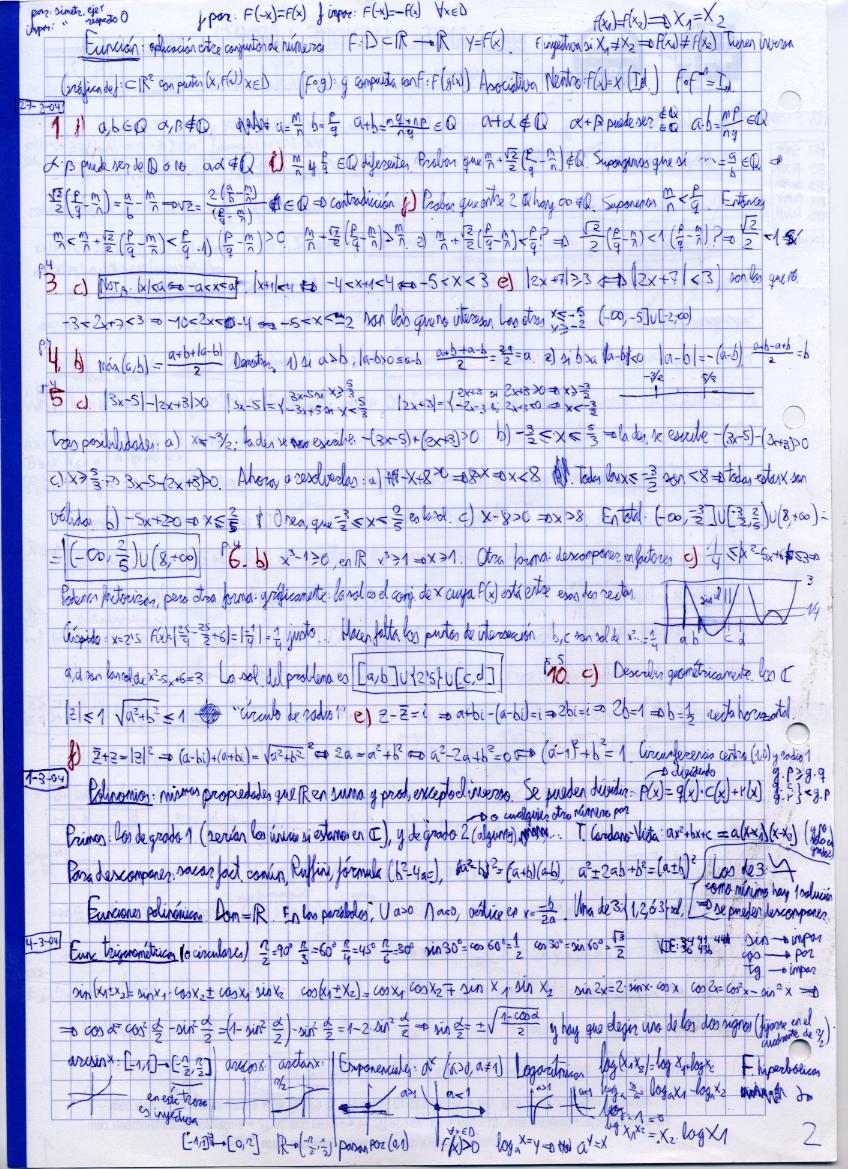 par: simetr. eje y   f par: F(-x)=F(x)   f impar: F(-x)=-F(x)   ∀x∈D   f(x₁)=f(x₂) ⇒ x₁=x₂
impar: " respecto 0
Función: aplicación entre conjuntos de números   F: D⊂ℝ→ℝ   y=F(x).   F inyectiva si x₁≠x₂ ⇒ F(x₁)≠F(x₂). Tienen inversa
(gráfica de f: ⊂ℝ² con puntos (x, F(x)) x∈D   (F∘g): g compuesta con F: F(g(x))   Asociativa   Neutro: F(x)=x (Id.)   F∘F⁻¹=Id.
27-2-04
1. a,b∈ℚ   α,β∉ℚ.   a=m/n   b=p/q   a+b=(mq+np)/nq ∈ℚ   a+α∉ℚ   α+β puede ser ∉ℚ ∈ℚ   a·b=mp/nq ∈ℚ
α·β puede ser de ℚ o no   aα∉ℚ   m/n y p/q ∈ℚ diferentes. Probar que m/n+√2/2(p/q-m/n)∉ℚ. Supongamos que sí ...=a/b∈ℚ ⇒
√2/2(p/q-m/n)=a/b-m/n ⇒ √2=2(a/b-m/n)/(p/q-m/n) ∈ℚ ⇒ contradicción   Probar que entre 2 ℚ hay ∞ ∉ℚ. Suponemos m/n<p/q. Entonces
m/n<m/n+√2/2(p/q-m/n)<p/q. 1) (p/q-m/n)>0.   m/n+√2/2(p/q-m/n)>m/n.   2) m/n+√2/2(p/q-m/n)<p/q? ⇒ √2/2(p/q-m/n)<1(p/q-m/n)? ⇒ √2/2<1 Sí
p.4
3 c) Nota: |x|<a ⇔ -a<x<a   |x+1|<4 ⇔ -4<x+1<4 ⇔ -5<x<3   e) |2x+7|≥3 ⇔ (|2x+7|<3) son los que no.
-3<2x+7<3 ⇒ -10<2x<-4 ⇔ -5<x<-2 son los que no interesan. Los otros x≤-5 x≥-2   (-∞,-5]∪[-2,∞)
4. b) máx(a,b)=(a+b+|a-b|)/2   Demostrar. 1) si a>b, |a-b|>0=a-b   (a+b+a-b)/2=2a/2=a.   2) si b>a |a-b|<0   |a-b|=-(a-b).   (a+b-a+b)/2=b
5 c) |3x-5|-|2x+3|>0   |3x-5|={3x-5 si x≥5/3   -3x+5 si x<5/3   |2x+3|={2x+3 si 2x+3>0 ⇒ x≥-3/2   -2x-3 si 2x+3<0 ⇒ x<-3/2   -3/2   5/3
Tres posibilidades: a) x≤-3/2: la des. se escribe: -(3x-5)+(2x+3)>0   b) -3/2≤x≤5/3 ⇒ la des. se escribe -(3x-5)-(2x+3)>0
c) x≥5/3 ⇒ 3x-5-(2x+3)>0.   Ahora, a resolverlas: a) -x+8>0 ⇒ 8>x ⇒ x<8   Todas las x≤-3/2 son <8 ⇒ todas estas x son
válidas   b) -5x+2≥0 ⇒ x≤2/5   O sea, que -3/2≤x≤2/5 es la sol.   c) x-8>0 ⇒ x>8.   En total: (-∞,-3/2]∪[-3/2,2/5)∪(8,+∞)=
=(-∞,2/5)∪(8,+∞)   p.4 6. b) x³-1≥0, en ℝ x³≥1 ⇒ x≥1.   Otra forma: descomponer en factores   c) 1/4≤|x²-5x+6|≤3 ⇒
Podemos factorizar, pero otra forma: gráficamente: la sol es el conj. de x cuya f(x) está entre esas dos rectas.   sin el ||   3   1/4   a b   c d
Cúspide: x=2'5   F(x)=|25/4-25/2+6|=|-1/4|=1/4 justo... Hacen falta los puntos de intersección   b,c son sol de x²...=1/4
a,d son las sol de x²-5x+6=3.   La sol. del problema es [a,b]∪{2'5}∪[c,d]   p.5 10. c) Describir geométricamente los ℂ
|z|≤1   √(a²+b²)≤1   "círculo de radio 1"   e) z-z̄=i ⇒ a+bi-(a-bi)=i ⇒ 2bi=i ⇒ 2b=1 ⇒ b=1/2 recta horizontal.
f) z̄+z=|z|² ⇒ (a-bi)+(a+bi)=√(a²+b²)² ⇔ 2a=a²+b² ⇔ a²-2a+b²=0 ⇔ (a-1)²+b²=1.   Circunferencia centro (1,0) y radio 1
1-3-04
Polinomios: mismas propiedades que ℝ en suma y prod, excepto el inverso. Se pueden dividir: P(x)=q(x)·C(x)+r(x)   → dividendo   g.p≥g.q   g.r<g.q
→ o cualquier otro número por
Primos: los de grado 1 (serían los únicos si estamos en ℂ), y de grado 2 (algunos)   T. Cardano-Vieta: ax²+bx+c=a(x-x₁)(x-x₂)
Para descomponer: sacar fact. común, Ruffini, fórmula (b²-4ac), (a²-b²)=(a+b)(a-b), a²±2ab+b²=(a±b)²   Los de 3:
como mínimo hay 1 solución
Funciones polinómicas. Dom=ℝ.   En las parábolas, ∪ a>0 ∩ a<0, vértice en x=-b/2a.   Una de 3: {1,2,ó 3} sol,   ⇒ se pueden descomponer
4-3-04
Func. trigonométricas (o circulares)   π/2=90°   π/3=60°   π/4=45°   π/6=30°   sin30°=cos60°=1/2   cos30°=sin60°=√3/2   sin → impar
cos → par
tg → impar
sin(x₁±x₂)=sinx₁·cosx₂±cosx₁·sinx₂   cos(x₁±x₂)=cosx₁ cosx₂∓sin x₁ sin x₂   sin2x=2·sinx·cosx   cos2x=cos²x-sin²x ⇒
⇒ cos α=cos² α/2-sin² α/2=(1-sin² α/2)-sin² α/2=1-2·sin² α/2 ⇒ sin α/2=±√((1-cosα)/2)   y hay que elegir uno de los dos signos (fijarse en el cuadrante de α/2)
arcsenx: [-1,1]→[-π/2,π/2]   arccosx:   arctanx:   Exponenciales: aˣ (a>0, a≠1)   Logarítmicas   log(x₁x₂)=log x₁+log x₂   F. hiperbólicas
en este trozo es inyectiva   π/2   a>1   a<1   a>1   a<1   =logₐx₁-logₐx₂
[-1,1]→[0,π]   ℝ→(-π/2,π/2)   pasan por (0,1)   ∀x∈D F(x)>0   logₐx=y ⇒ aʸ=x   log x₁ˣ²=x₂ log x₁   2